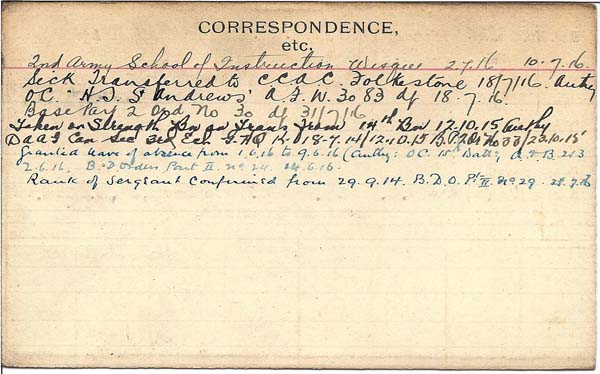 CORRESPONDENCE,
etc.
2nd Army School of Instruction Wisques 2.7.16 10.7.16.
Sick Transferred to C.C.A.C. Folkestone 18/7/16. Authy
OC. "H.S. St Andrews" A.F.W. 3083 df 18.7.16.
Base Part 2 Ord No 30 df 31/7/16
Taken on Strength Bn on Trans from 14th Bn 12.10.15 Authy
DAAG Can Sec 3rd Ech GHQ 18-7-14/12.10.15 B.P.2.O. No 33/23.10.15
Granted leave of absence from 1.6.16 to 9.6.16 (Authy: O.C. 15th Battn, A.F.B. 213
2.6.16. B.D. Orders Part II. no 24 24.6.16.
Rank of Sergeant Confirmed from 29.9.14. B.D.O. Pt II no 29. 28.7.16